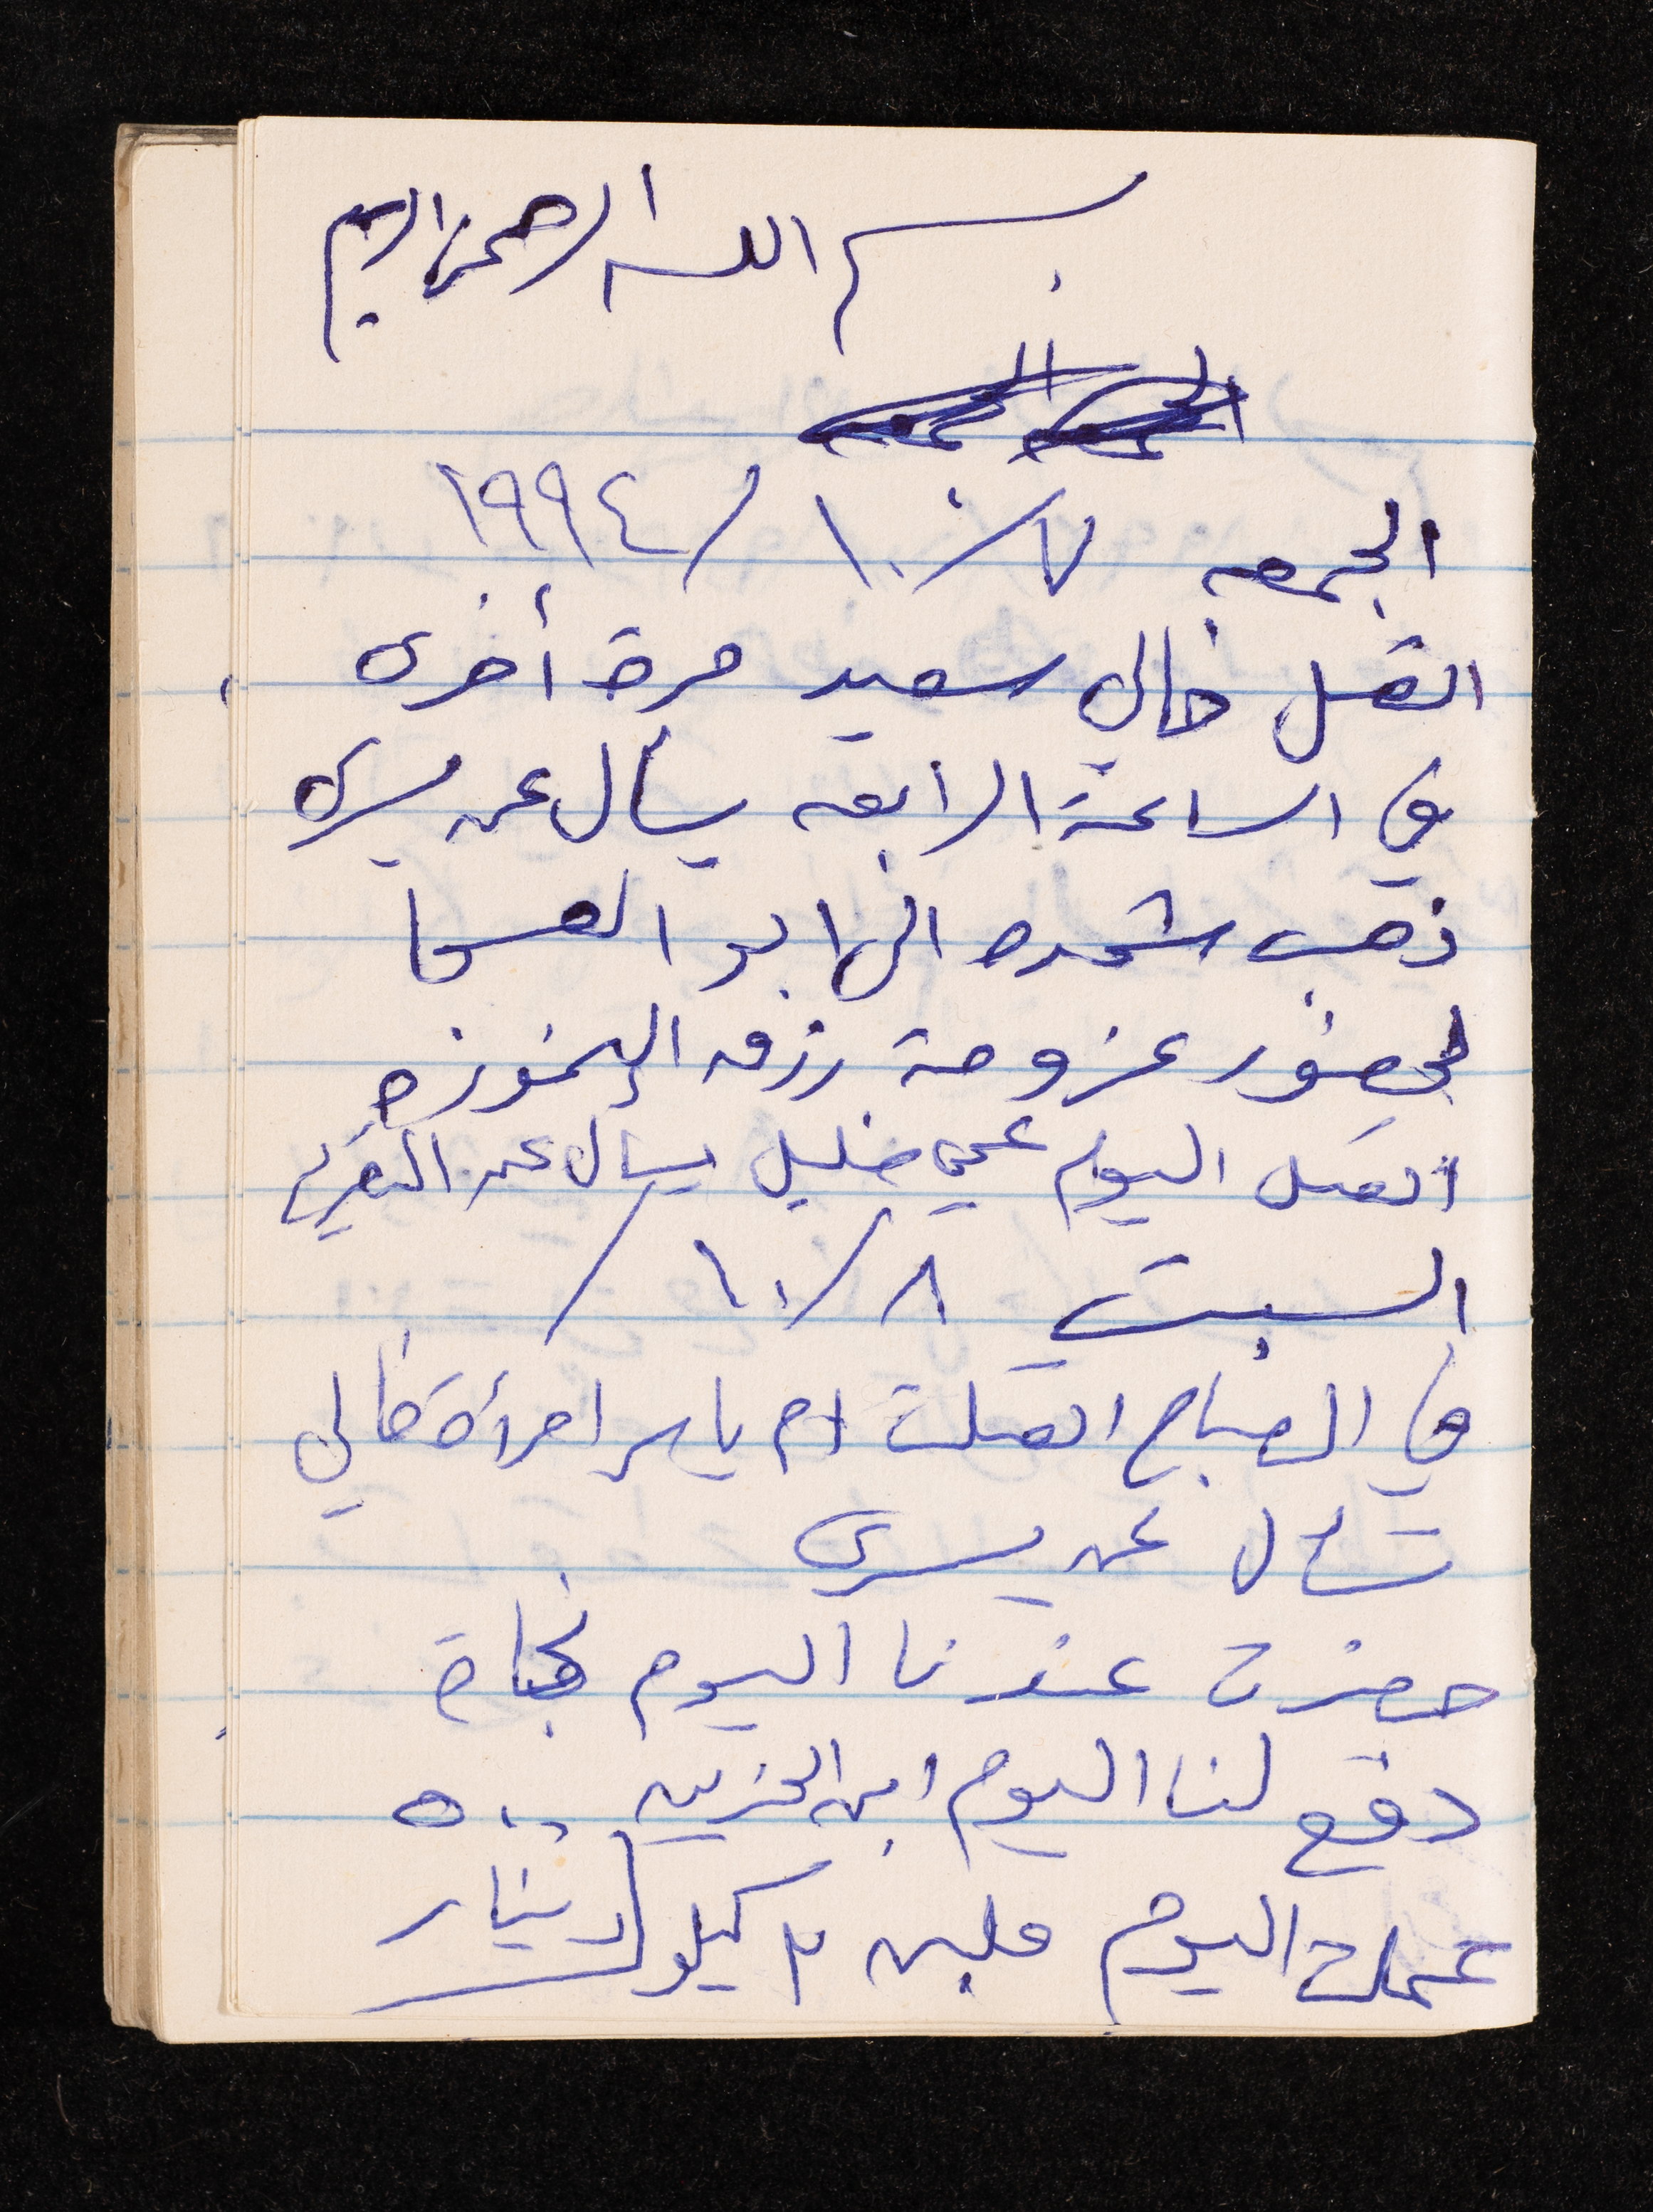 بسم الله الرحمن الرحيم
الجمعه ٧/١٠/١٩٩٤
اتصل خالي سعيد مرة أخرى
في الساعة الرابعه يسأل عن يسرى
ذهب شحده الى ابو العسجا
لحضور عزومة رزق
اتصل اليوم عمي خليل يسأل عن التقرير
السبت ٨/١٠/
في الصباح اتصلت ام ياسر امرأة خالي
تسأل عن يسرى
حضرت عندنا اليوم نجاة
دفع لنا اليوم ابن الحزين ٥٠٠
دينار
عملت اليوم ملبن ٢ كيلو